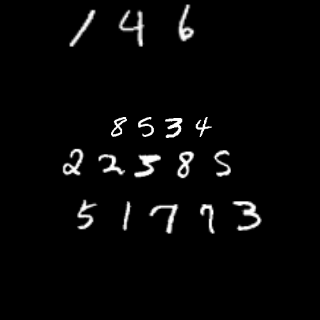 146
8534
22585
51773